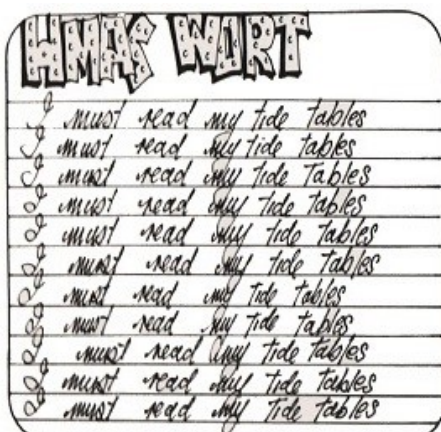 HMAS WORT
I must read my tide tables
I must read my tide tables
I must read my tide tables
I must read my tide tables
I must read my tide tables
I must read my tide tables
I must read my tide tables
I must read my tide tables
I must read my tide tables
I must read my tide tables
I must read my tide tables